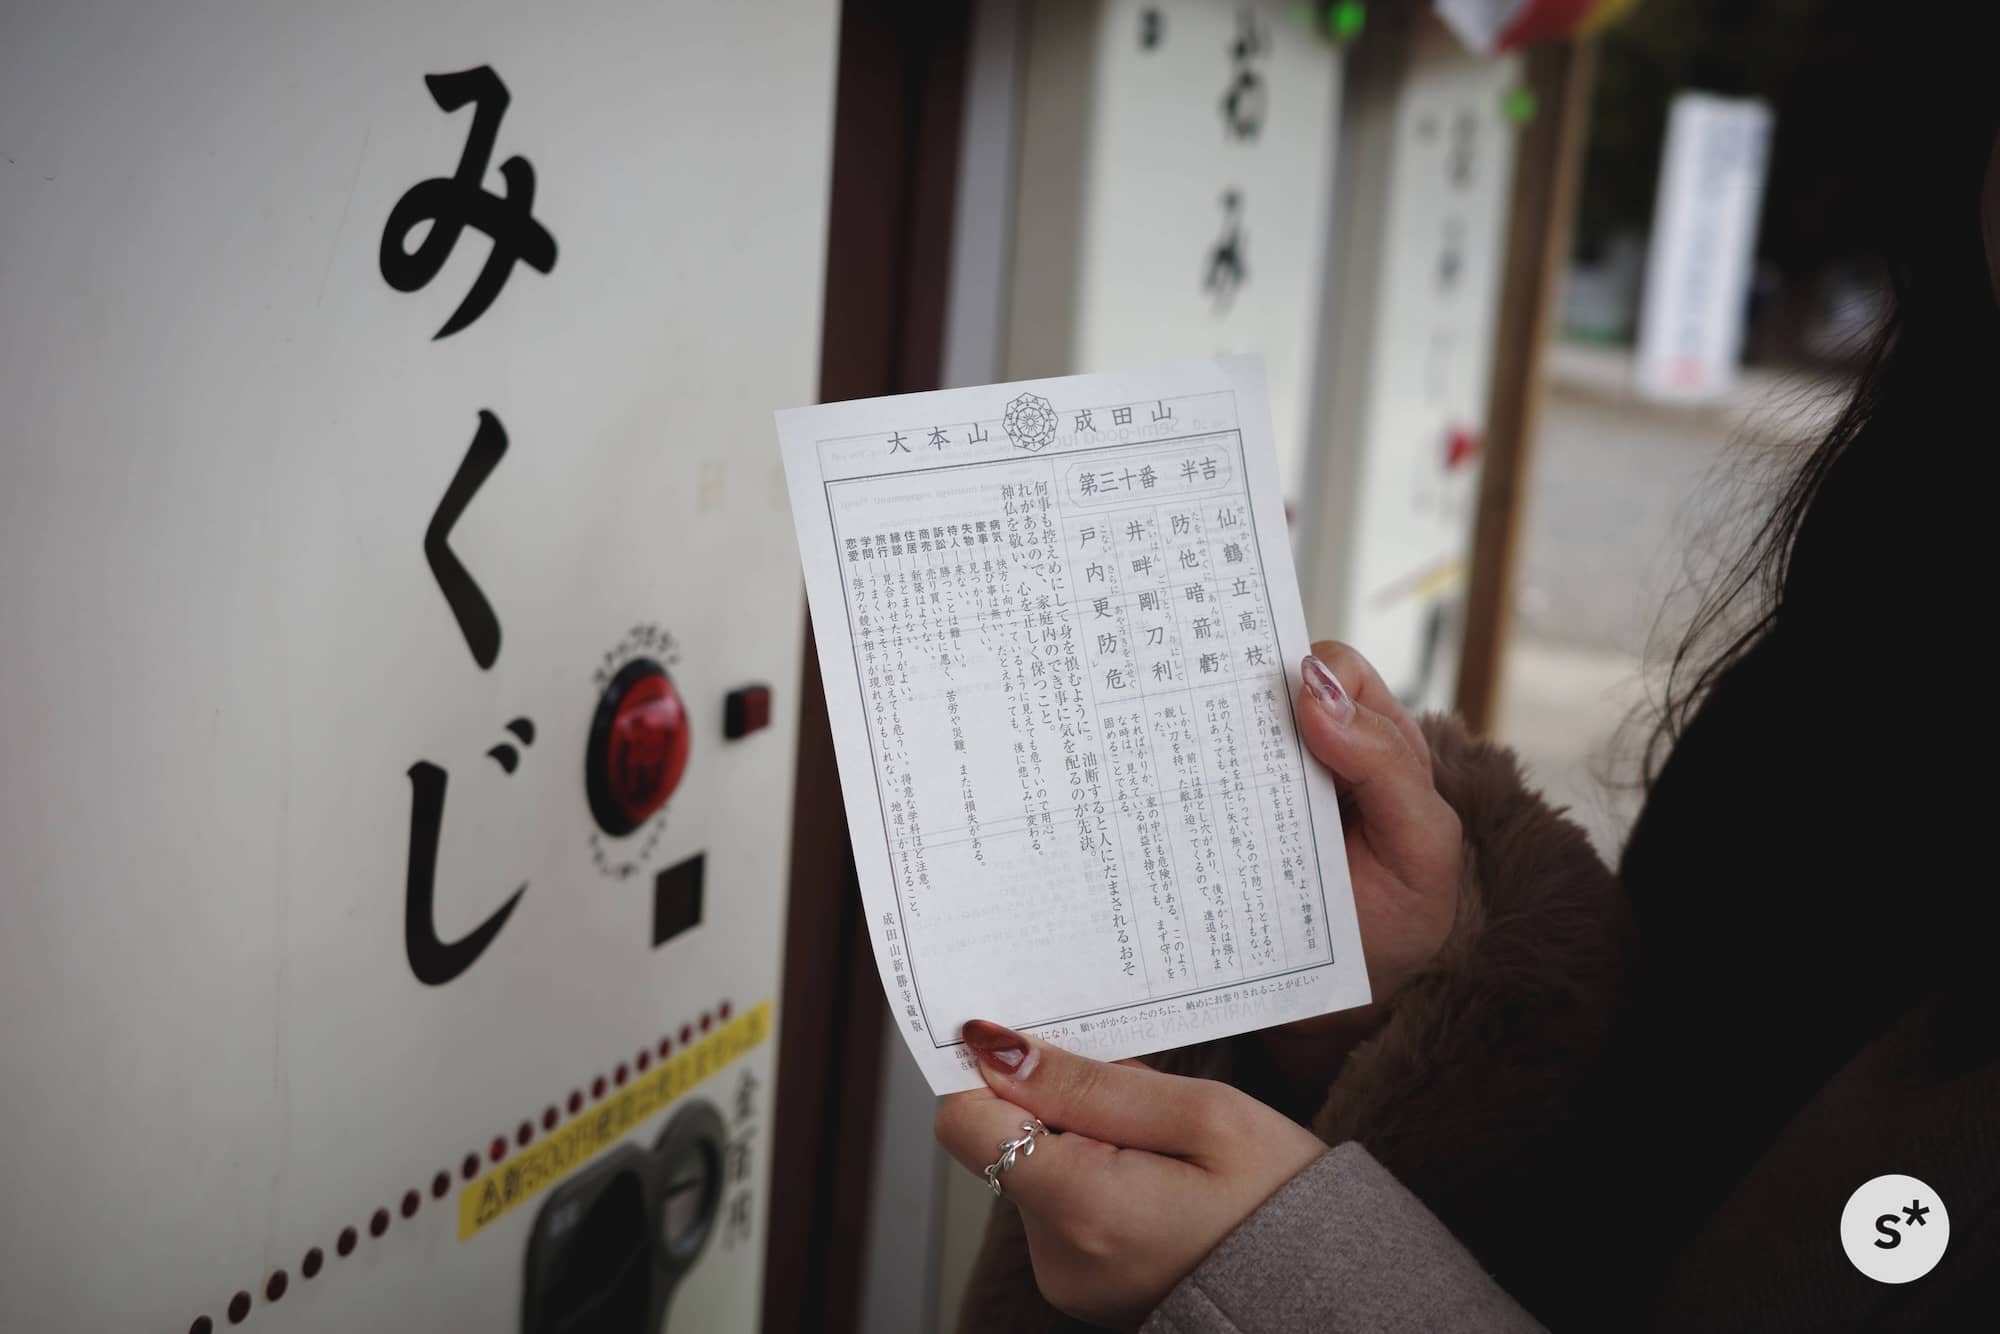 みくじ
大本山 成田山
第三十番 半吉
仙鶴立高枝
せんかく こうしにたてども
美しい鶴が高い枝にとまっている。よい物事が目
前にありながら、手を出せない状態。
防他暗箭虧
たをふせぐに あんせんかく
他の人もそれをねらっているので防ごうとするが、
弓はあっても、手元に矢が無く、どうしようもない。
井畔剛刀利
せいはん ごうとうりにして
しかも、前には落とし穴があり、後ろからは強く
鋭い刀を持った敵が迫ってくるので、進退きわま
った。
戸内更防危
こない さらに あやうきをふせぐ
そればかりか、家の中にも危険がある。このよう
な時は、見えている利益を捨てても、まず守りを
固めることである。
何事も控えめにして身を慎むように。油断すると人にだまされるおそ
れがあるので、家庭内のでき事に気を配るのが先決。
神仏を敬い、心を正しく保つこと。
病気―快方に向かっているように見えても危ういので用心。
慶事―喜び事は無い。たとえあっても、後に悲しみに変わる。
失物―見つかりにくい。
待人―来ない。
訴訟―勝つことは難しい。
商売―売り買いともに悪く、苦労や災難、または損失がある。
住居―新築はよくない。
縁談―まとまらない。
旅行―見合わせたほうがよい。
学問―うまくいきそうに思えても危うい。得意な学科ほど注意。
恋愛―強力な競争相手が現れるかもしれない。地道にかまえること。
成田山新勝寺蔵版
になり、願いがかなったのちに、納めにお参りされることが正しい
新500円硬貨は使えません
s*